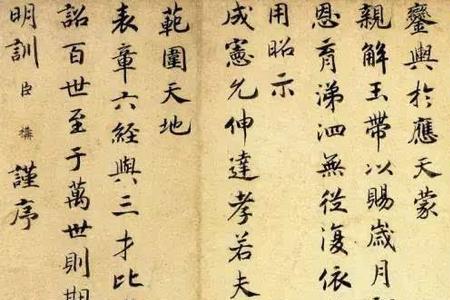 鑾輿於應天蒙
親解玉帶以賜歲月
恩育涕泗無從復依
用昭示
成憲允伸達孝若夫
範圍天地
表章六經與三才比
詔百世至于萬世則期
明訓臣構謹序